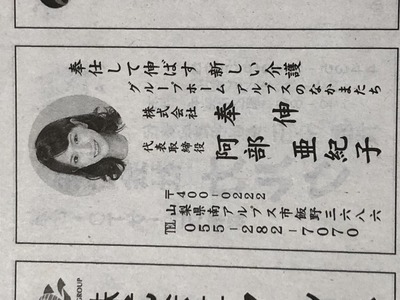 奉仕して伸ばす新しい介護
グループホームアルプスのなかまたち
株式会社 奉伸
代表取締役 阿部 亜紀子
〒400-0222
山梨県南アルプス市飯野三六八六
℡055-282-7070
GROUP